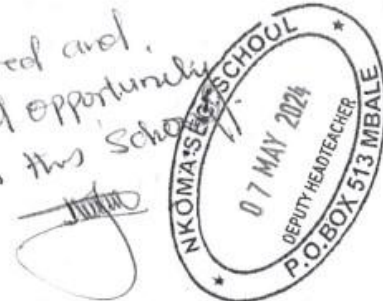 and
opportunity
this School.
NKOMA SEC. SCHOOL
07 MAY 2024
DEPUTY HEADTEACHER
P.O.BOX 513 MBALE